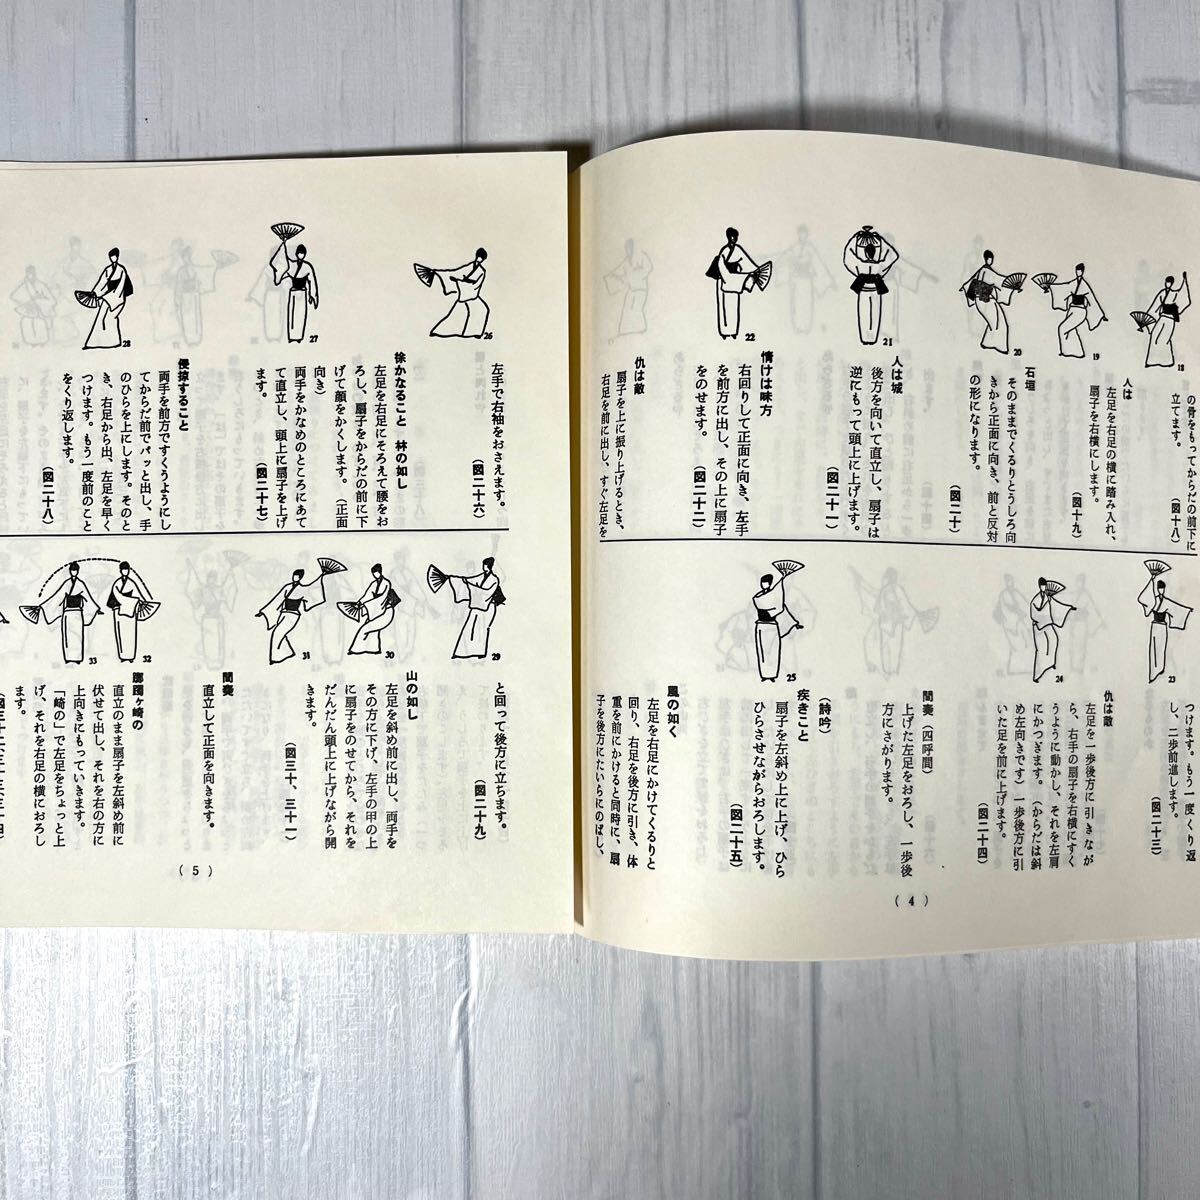 の骨をもってからだの前下に
立てます。
(図十八)
人は
左足を右足の横に踏み入れ、
扇子を右横にします。
(図十九)
石垣
そのままでくるりとうしろ向
きから正面に向き、前と反対
の形になります。
(図二十)
人は城
後方を向いて直立し、扇子は
逆にもって頭上に上げます。
(図二十一)
情けは味方
右回りして正面に向き、左手
を前方に出し、その上に扇子
をのせます。
(図二十二)
仇は敵
扇子を上に振り上げるとき、
右足を前に出し、すぐ左足を
18
19
20
21
22
つけます。もう一度くり返
し、二歩前進します。
(図二十三)
仇は敵
左足を一歩後方に引きなが
ら、右手の扇子を右横にすく
うように動かし、それを左肩
にかつぎます。(からだは斜
め左向きです)一歩後方に引
いた足を前に上げます。
(図二十四)
間奏(四呼間)
上げた左足をおろし、一歩後
方にさがります。
(詩吟)
疾きこと
扇子を左斜め上に上げ、ひら
ひらさせながらおろします。
(図二十五)
風の如く
左足を右足にかけてくるりと
回り、右足を後方に引き、体
重を前にかけると同時に、扇
子を後方にたいらにのばし、
23
24
25
(4)
左手で右袖をおさえます。
(図二十六)
徐かなること 林の如し
左足を右足にそろえて腰をお
ろし、扇子をからだの前に下
げて顔をかくします。(正面
向き)
両手をかなめのところにあて
て直立し、頭上に扇子を上げ
ます。
(図二十七)
侵掠すること
両手を前方ですくうようにし
てからだ前でパッと出し、手
のひらを上にします。そのと
き、右足から出、左足を早く
つけます。もう一度前のこと
をくり返します。
(図二十八)
26
27
28
と回って後方に立ちます。
(図二十九)
山の如し
左足を斜め前に出し、両手を
その方に下げ、左手の甲の上
に扇子をのせてから、それを
だんだん頭上に上げながら開
きます。
(図三十、三十一)
間奏
直立して正面を向きます。
躑躅ヶ崎の
直立のまま扇子を左斜め前に
伏せて出し、それを右の方に
上向きにもっていきます。
「崎の」で左足をちょっと上
げ、それを右足の横におろし
ます。
29
30
31
32
33
(5)